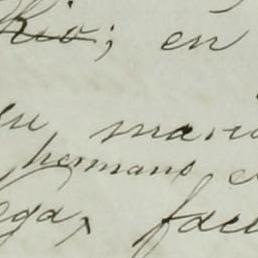 Rio; en
su mari
hermano e
ega, facu